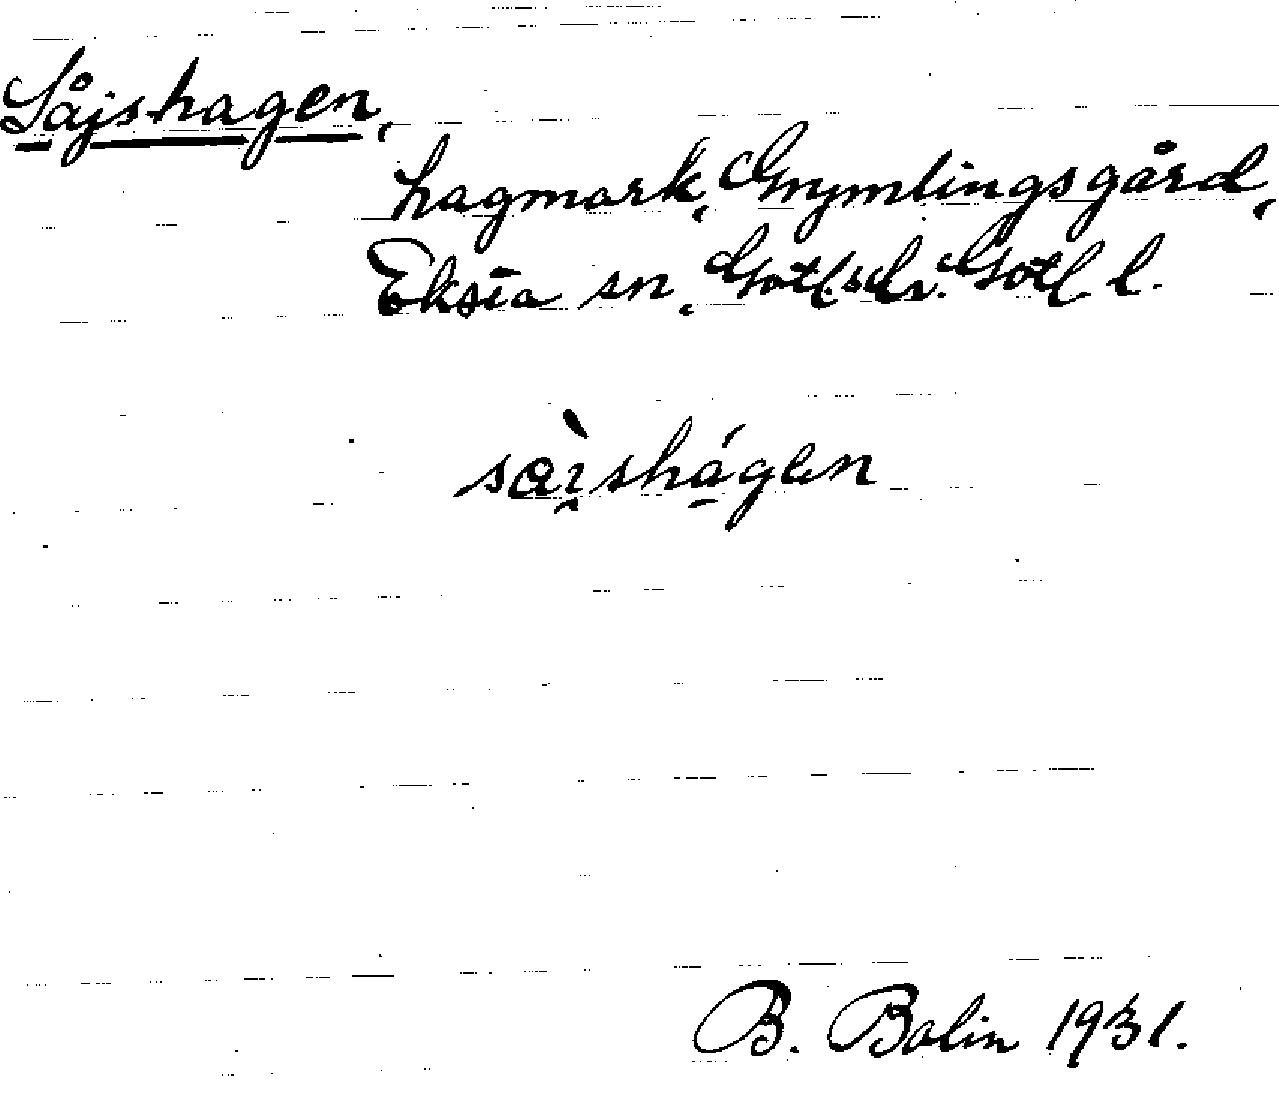 Såjshagen,
hagmark, Gnymlingsgård,
Eksta sn, Gotl. s. hr. Gotl l.
sɑ̀i̯shá̠gen
B. Bolin 1931.